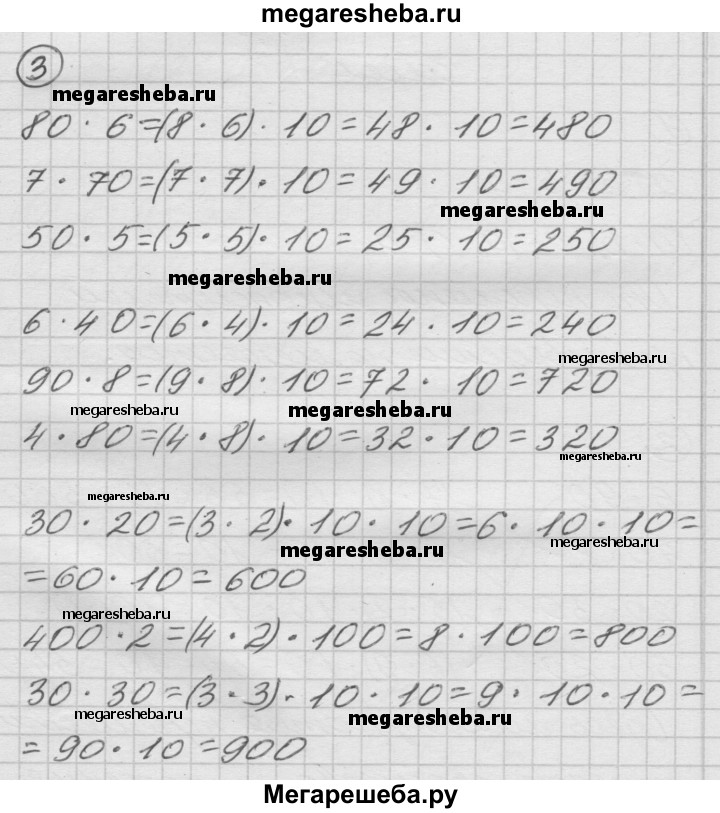 megaresheba.ru
3
megaresheba.ru
80 · 6=(8 · 6) · 10=48 · 10=480
7 · 70=(7 · 7) · 10=49 · 10=490
megaresheba.ru
50 · 5=(5 · 5) · 10=25 · 10=250
megaresheba.ru
6 · 40=(6 · 4) · 10=24 · 10=240
megaresheba.ru
90 · 8=(9 · 8) · 10=72 · 10=720
megaresheba.ru megaresheba.ru
4 · 80=(4 · 8) · 10=32 · 10=320
megaresheba.ru
megaresheba.ru
30 · 20=(3 · 2) · 10 · 10=6 · 10 · 10=
megaresheba.ru megaresheba.ru
=60 · 10=600
megaresheba.ru
400 · 2=(4 · 2) · 100=8 · 100=800
30 · 30=(3 · 3) · 10 · 10=9 · 10 · 10=
megaresheba.ru megaresheba.ru
=90 · 10=900
Мегарешеба.ру